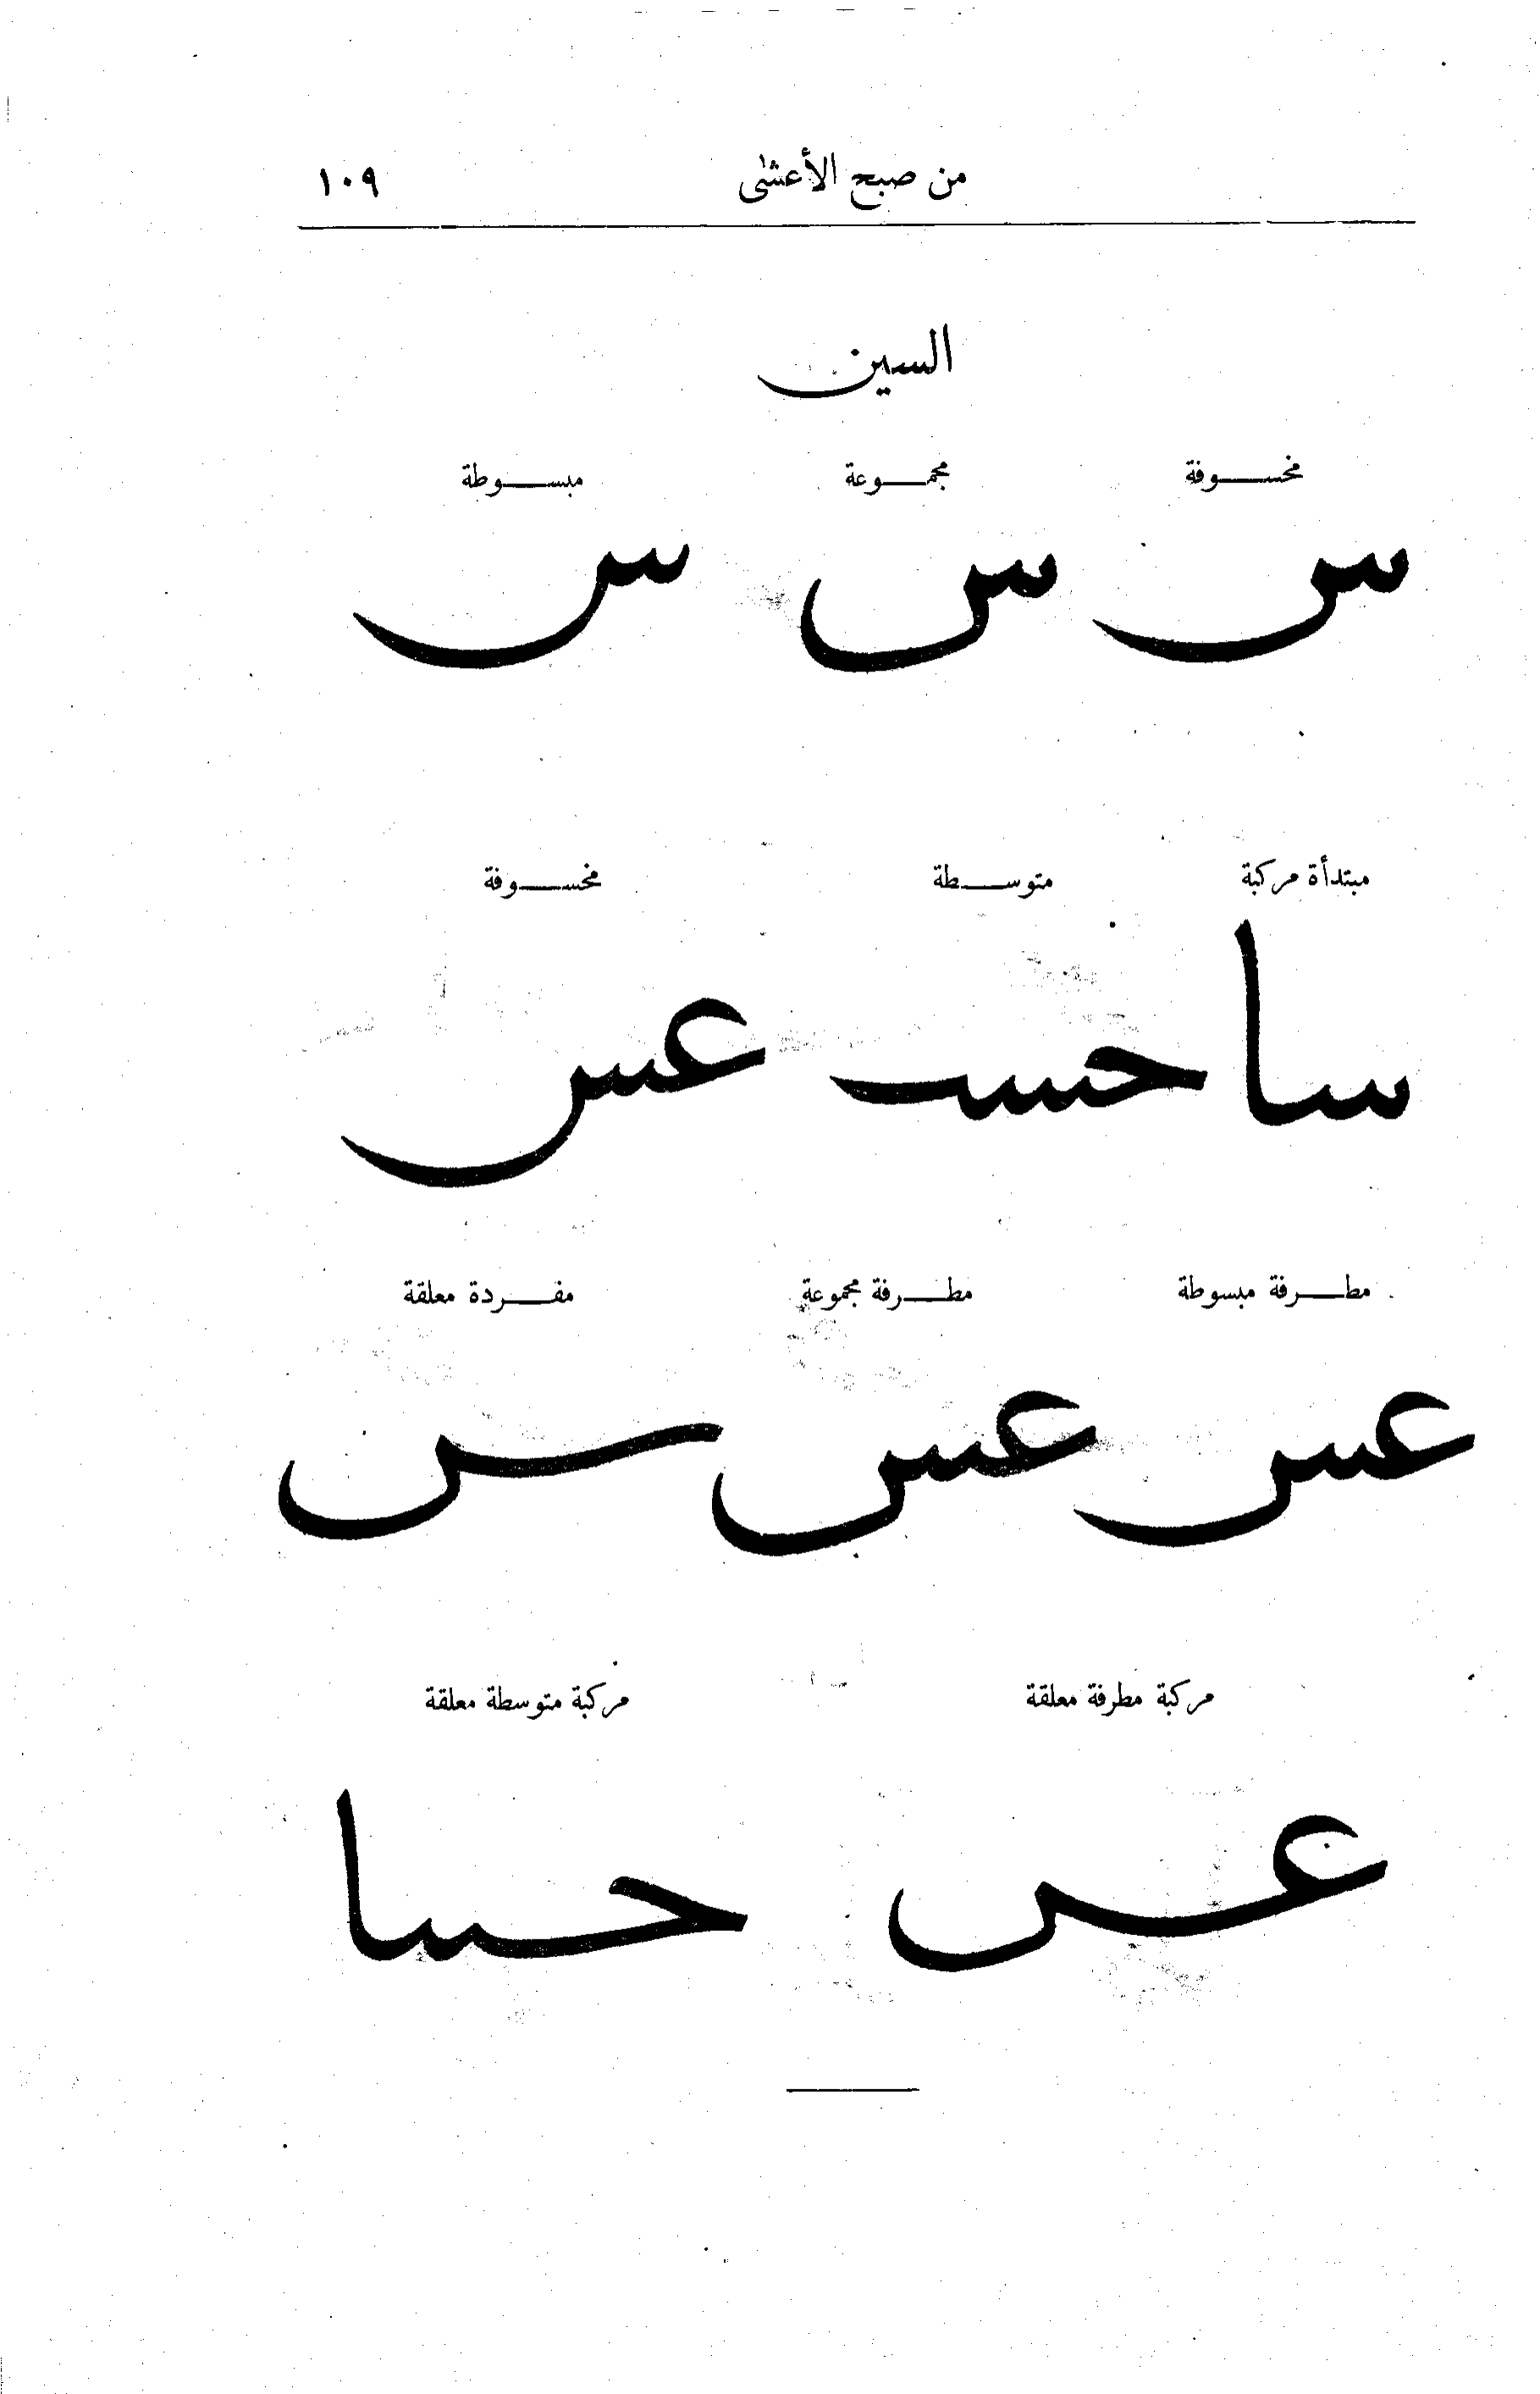 من صبح الأعشى ١٠٩
السين
مخسوفة مجموعة مبسوطة
س س س
مبتدأة مركبة متوسطة مخسوفة
سا حسـ عس
مطرفة مبسوطة مطرفة مجموعة مفردة معلقة
عس عس س
مركبة مطرفة معلقة مركبة متوسطة معلقة
عس حسا